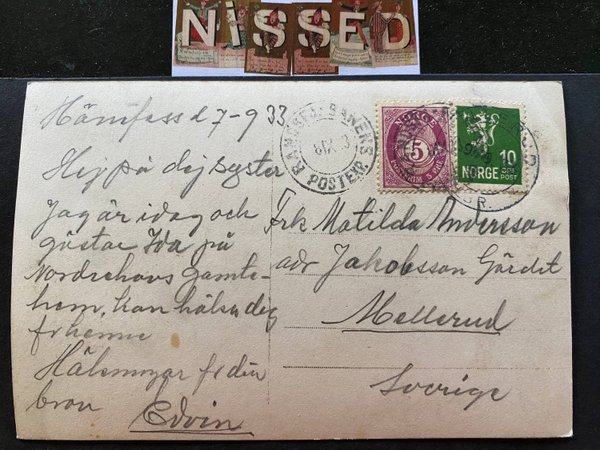 NiSSED
Hönefoss d 7-9 33
Hej på dej syster
Jag är idag och
gästar Ida på
Nordrehovs gamle-
hem, kan hälsa dig
fr henne
Hälsningar fr din
bror
Edvin
RANDSFJ. BANENS
8 IX 3
POSTEXP.
NORGE
5
10
ØRE
POST
NORGE
Frk Matilda Andersson
adr Jakobsson Gärdet
Mellerud
Sverige